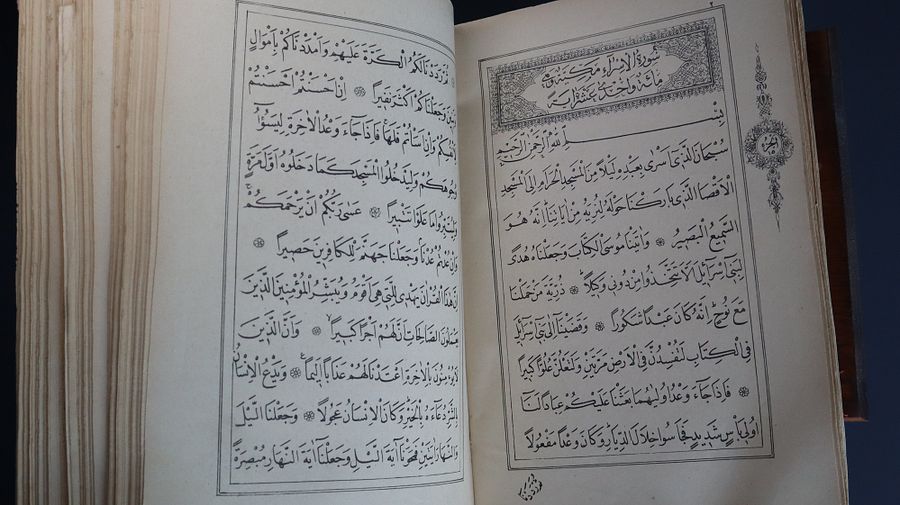 ٢
سُورَةُ الْاِسْرَاءِ مَكِّيَّةٌ وَهِيَ
مِائَةٌ وَاِحْدٰى عَشْرَةَ اٰيَةً
الجزء
١٥
بِسْــــــمِ اللّٰهِ الرَّحْمٰنِ الرَّحِيمِ
سُبْحَانَ الَّذٓى اَسْرٰى بِعَبْدِهِ لَيْلًا مِنَ الْمَسْجِدِ الْحَرَامِ اِلَى الْمَسْجِدِ
الْاَقْصَا الَّذٓى بَارَكْنَا حَوْلَهُ لِنُرِيَهُ مِنْ اٰيَاتِنَا اِنَّهُ هُوَ
السَّمِيعُ الْبَصِيرُ ۞ وَاٰتَيْنَا مُوسَى الْكِتَابَ وَجَعَلْنَاهُ هُدًى
لِبَنٓى اِسْرَآئِلَ اَلَّا تَتَّخِذُوا مِنْ دُونٓى وَكِيلًا ۞ ذُرِّيَّةَ مَنْ حَمَلْنَا
مَعَ نُوحٍ اِنَّهُ كَانَ عَبْدًا شَكُورًا ۞ وَقَضَيْنَآ اِلٰى بَنٓى اِسْرَآئِلَ
فِى الْكِتَابِ لَتُفْسِدُنَّ فِى الْاَرْضِ مَرَّتَيْنِ وَلَتَعْلُنَّ عُلُوًّا كَبِيرًا
۞ فَاِذَا جَآءَ وَعْدُ اُولٰيهُمَا بَعَثْنَا عَلَيْكُمْ عِبَادًا لَنَآ
اُولٓى بَاْسٍ شَدِيدٍ فَجَاسُوا خِلَالَ الدِّيَارِ وَكَانَ وَعْدًا مَفْعُولًا
ثُمَّ رَدَدْنَا لَكُمُ الْكَرَّةَ عَلَيْهِمْ وَاَمْدَدْنَاكُمْ بِاَمْوَالٍ
وَبَنِينَ وَجَعَلْنَاكُمْ اَكْثَرَ نَفِيرًا ۞ اِنْ اَحْسَنْتُمْ اَحْسَنْتُمْ
لِاَنْفُسِكُمْ وَاِنْ اَسَاْتُمْ فَلَهَا فَاِذَا جَآءَ وَعْدُ الْاٰخِرَةِ لِيَسُٓؤُا
وُجُوهَكُمْ وَلِيَدْخُلُوا الْمَسْجِدَ كَمَا دَخَلُوهُ اَوَّلَ مَرَّةٍ
وَلِيُتَبِّرُوا مَا عَلَوْا تَتْبِيرًا ۞ عَسٰى رَبُّكُمْ اَنْ يَرْحَمَكُمْ
وَاِنْ عُدْتُمْ عُدْنَا وَجَعَلْنَا جَهَنَّمَ لِلْكَافِرِينَ حَصِيرًا ۞
اِنَّ هٰذَا الْقُرْاٰنَ يَهْدٓى لِلَّتٓى هِىَ اَقْوَمُ وَيُبَشِّرُ الْمُؤْمِنِينَ الَّذٓينَ
يَعْمَلُونَ الصَّالِحَاتِ اَنَّ لَهُمْ اَجْرًا كَبِيرًا ۞ وَاَنَّ الَّذٓينَ
لَا يُؤْمِنُونَ بِالْاٰخِرَةِ اَعْتَدْنَا لَهُمْ عَذَابًا اَلِيمًا ۞ وَيَدْعُ الْاِنْسَانُ
بِالشَّرِّ دُعَآءَهُ بِالْخَيْرِ وَكَانَ الْاِنْسَانُ عَجُولًا ۞ وَجَعَلْنَا الَّيْلَ
وَالنَّهَارَ اٰيَتَيْنِ فَمَحَوْنَآ اٰيَةَ الَّيْلِ وَجَعَلْنَآ اٰيَةَ النَّهَارِ مُبْصِرَةً